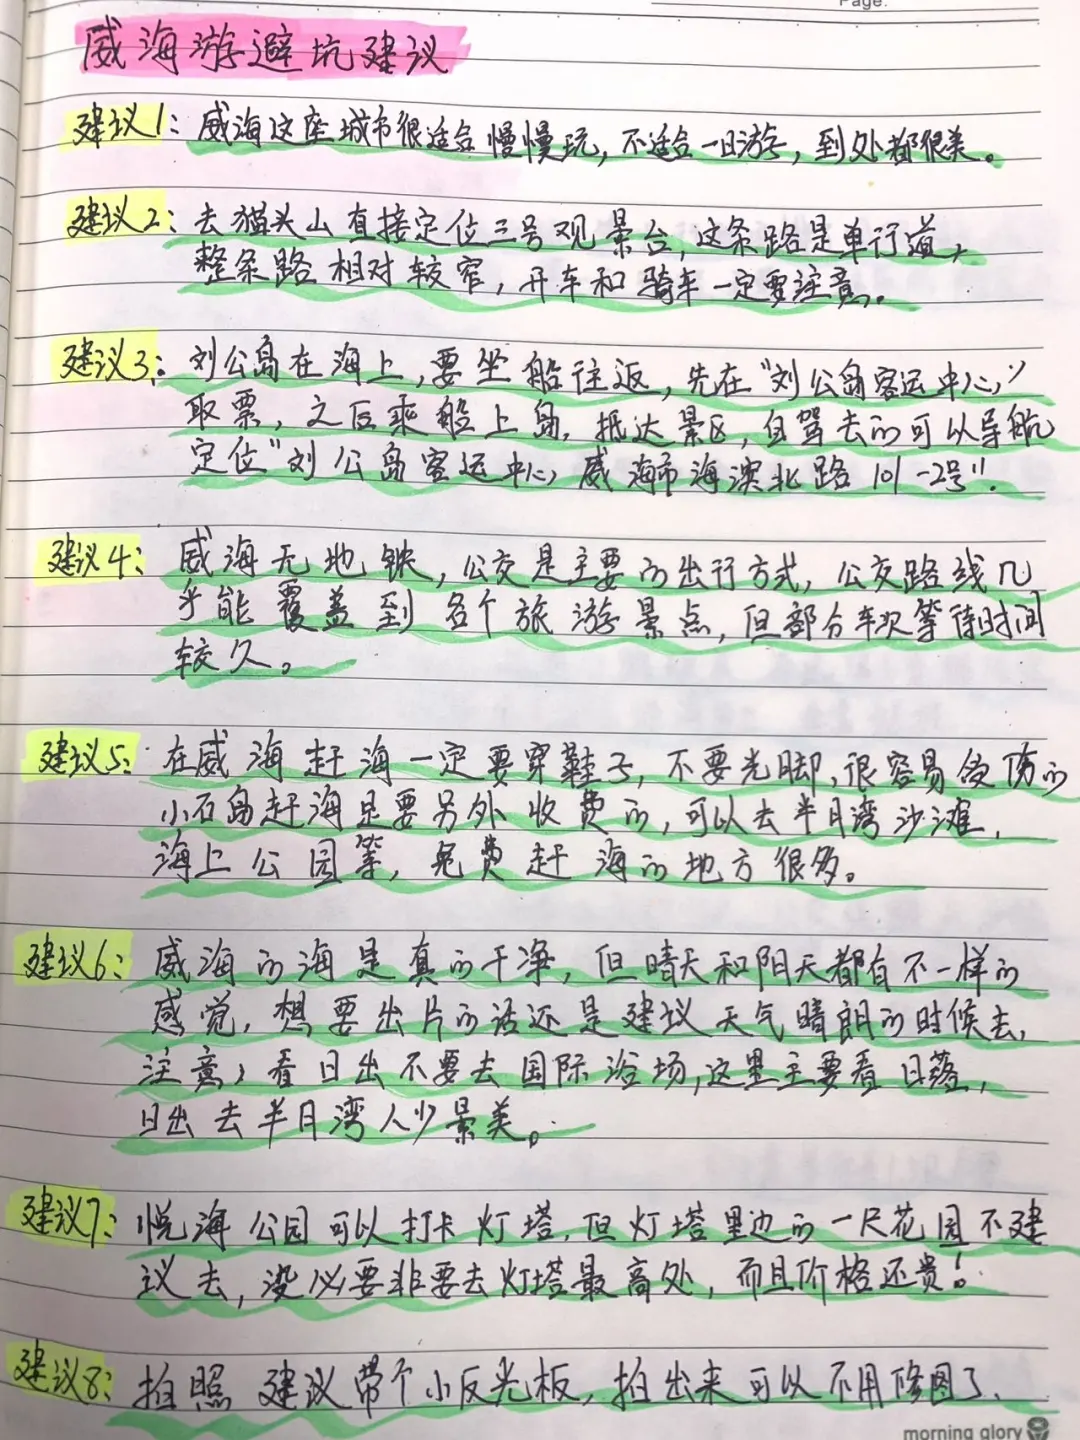 Page.
威海游避坑建议
建议1: 威海这座城市很适合慢慢玩,不适合一日游,到处都很美。
建议2: 去猫头山直接定位三号观景台,这条路是单行道,
整条路相对较窄,开车和骑车一定要注意。
建议3: 刘公岛在海上,要坐船往返,先在"刘公岛客运中心"
取票,之后乘船上岛,抵达景区,自驾去的可以导航
定位"刘公岛客运中心,威海市海滨北路101-2号"!
建议4: 威海无地铁,公交是主要的出行方式,公交路线几
乎能覆盖到各个旅游景点,但部分车次等待时间
较久。
建议5: 在威海赶海一定要穿鞋子,不要光脚,很容易受伤的
小石岛赶海是要另外收费的,可以去半月湾沙滩,
海上公园等,免费赶海的地方很多。
建议6: 威海的海是真的干净,但晴天和阴天都有不一样的
感觉,想要出片的话还是建议天气晴朗的时候去,
注意,看日出不要去国际浴场,这里主要看日落,
日出去半月湾人少景美。
建议7: 悦海公园可以打卡灯塔,但灯塔里边的一尺花园不建
议去,没必要非要去灯塔最高处,而且价格还贵!
建议8: 拍照建议带个小反光板,拍出来可以不用修图了.
morning glory